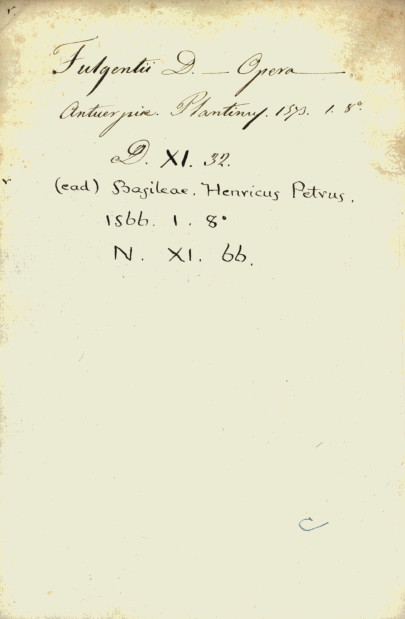 Fulgentii D. — Opera —
Antuerpiæ. Plantinus, 1573. 1. 8°
D. XI. 32.
(ead) Basileae. Henricus Petrus.
1566. 1. 8°
N. XI. 66.
C